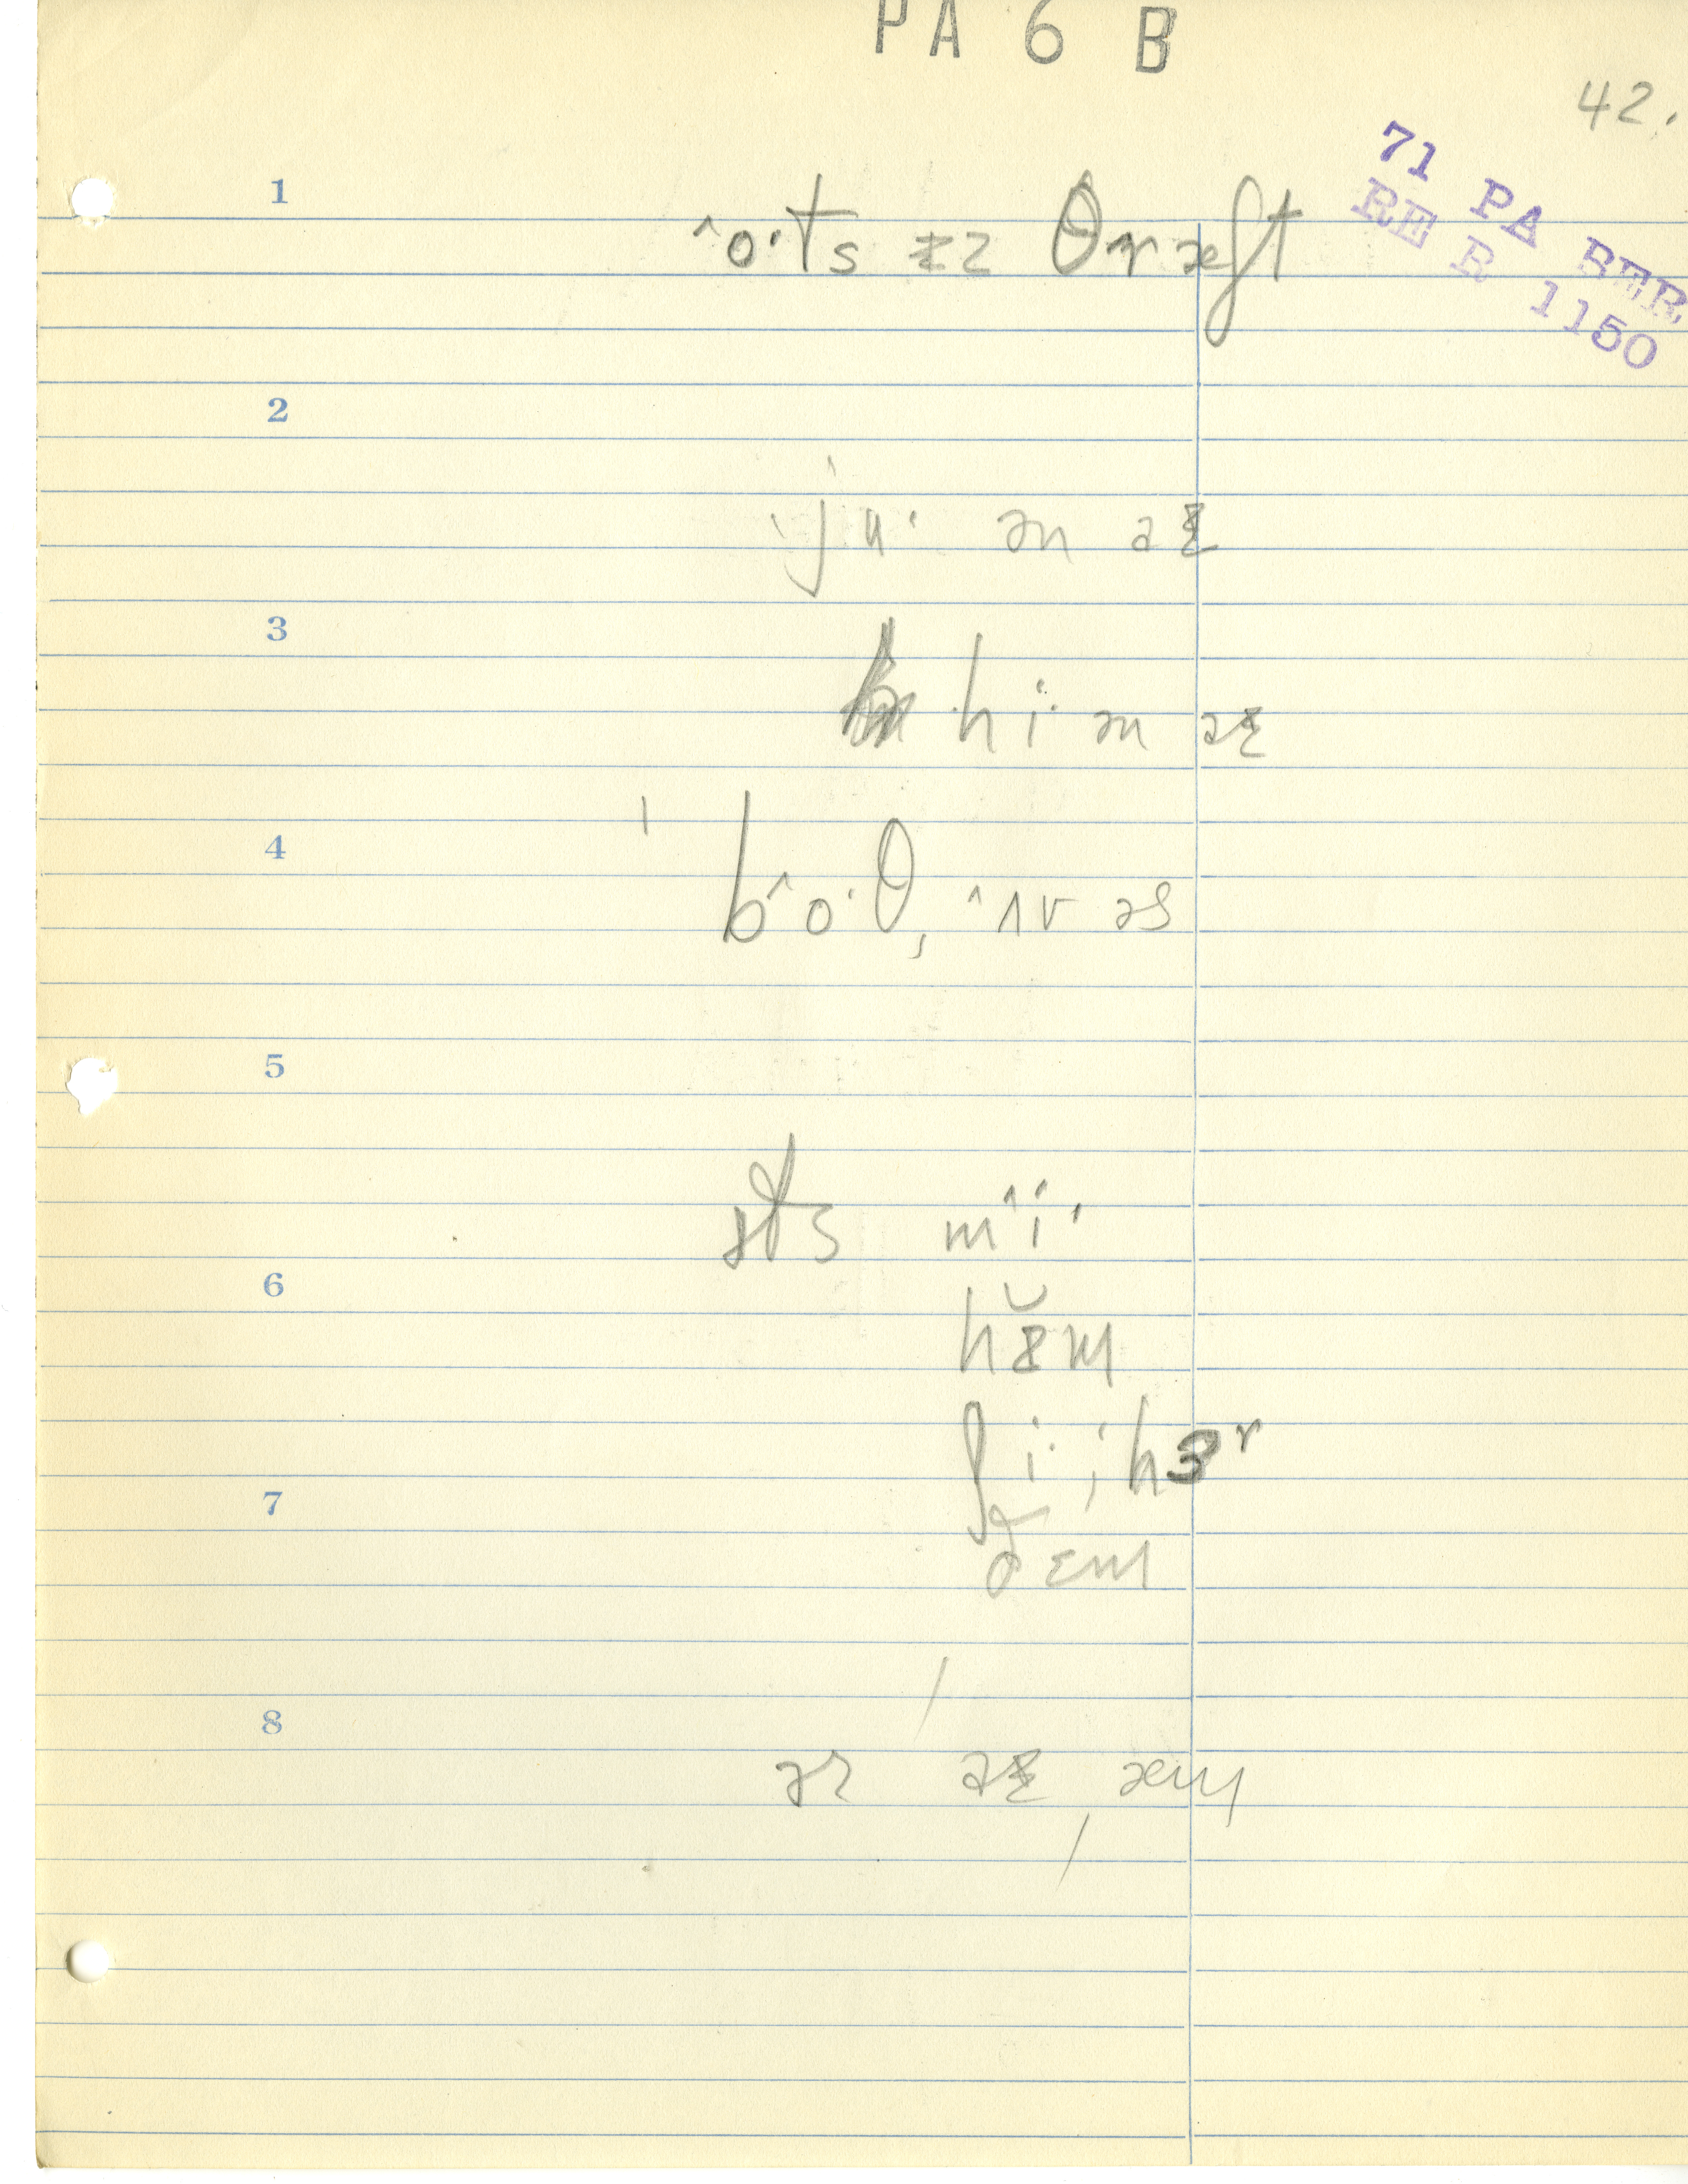 PA 6 B
42.
71 PA BER
RE R 1150
1
ˆo·ts ɪz θræft
2
'ju· ən əɪ
3
hi· ən əɪ
4
' bˆo·θ, ˆʌv əs
5
ɪts mˆi·
6
hɪ̆m
ʃi· ; hɜr
7
ðɛm
8
ər əɪ æm